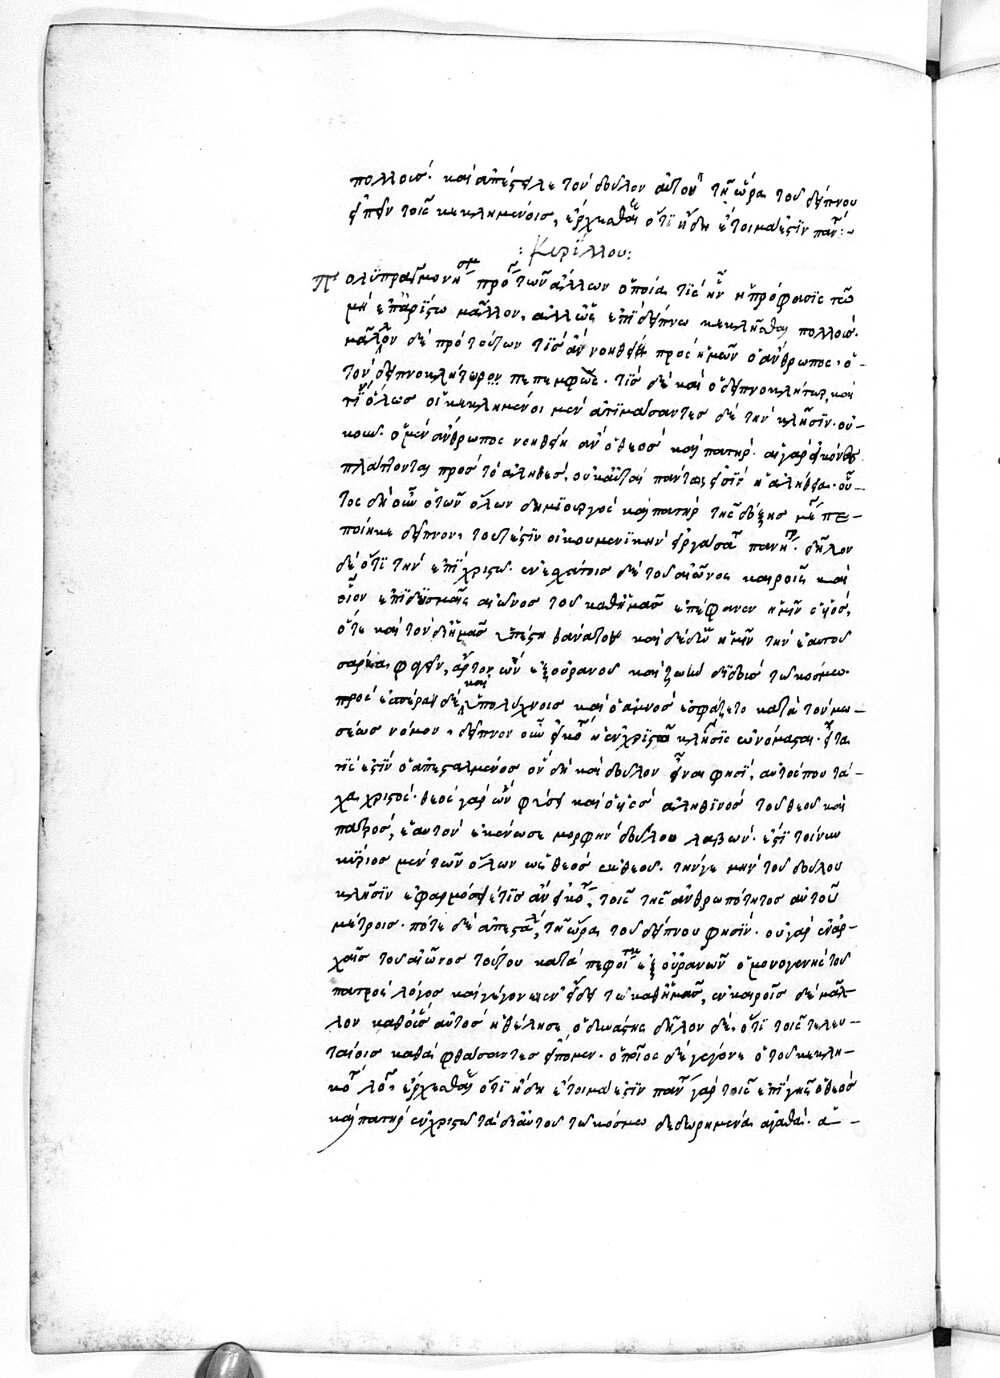 πολλούς· καὶ ἀπέστειλε τὸν δοῦλον αὐτοῦ τῇ ὥρᾳ τοῦ δείπνου
εἰπεῖν τοῖς κεκλημένοις, ἔρχεσθαι ὅτι ἤδη ἕτοιμα ἐστὶν πάν :~
: Κυρίλλου :
Πολυπραγμονη πρὸ τῶν ἄλλων ὁποία τίς ἦν ἡ πρόφασις τοῦ
μαλλον δὲ πρὸ τούτων τίς ἂν νοηθείη πρὸς ἡμῶν ὁ ἄνθρωπος· ὁ
τὸν δειπνοκλήτωρον πεπεμφώς· τίς δὲ καὶ ὁ δειπνοκλήτωρ, καὶ
τί ὅλως οἱ κεκλημένοι μὲν ἀτιμάσαντες δὲ τὴν κλῆσιν· οὐ-
κοῦν ὁ μὲν ἄνθρωπος νοηθείη ἂν ὁ θεὸς καὶ πατήρ· αἱ γὰρ εἰκόνες
πλάττονται πρὸς τὸ ἀληθές, οὐκ αὐταὶ πάντως εἰσὶν ἡ ἀλήθεια· οὗ-
τος δὴ οὖν ὁ τῶν ὅλων δημιουργὸς καὶ πατὴρ τῆς δόξης με πε-
ποίηκε δεῖπνον, τουτέστιν οἰκουμενικὴν πανη δῆλον
δὲ ὅτι τὴν ἐπὶ χριστῷ· ἐν ἐσχάτοις δὲ τοῦ αἰῶνος καιροῖς καὶ
οἷον ἐπὶ δυσμαῖς αἰῶνος τοῦ καθ' ἡμᾶς ἐπέφανεν ἡμῖν ὁ υἱός,
ὅτε καὶ τὸν δι' ἡμᾶς ὑπέστη θάνατον καὶ δέδωκεν ἡμῖν τὴν ἑαυτοῦ
σάρκα φαγεῖν, ἄρτον ὢν ἐξ οὐρανοῦ καὶ ζωὴν διδοὺς τῷ κόσμῳ·
πρὸς ἑσπέραν δὲ καὶ ὑπὸ λύχνοις καὶ ὁ ἀμνὸς ἐσφάζετο κατὰ τὸν μω-
σέως νόμον· δεῖπνον οὖν εἰκο ἡ ἐν χριστῷ κλῆσις ὠνόμασται· εἶτα
τίς ἐστὶν ὁ ἀπεσταλμένος ὃν δὴ καὶ δοῦλον εἶναι φησί, αὐτός που τά-
χα χριστός· θεὸς γὰρ ὢν φύσει καὶ υἱὸς ἀληθινὸς τοῦ θεοῦ καὶ
πατρός, ἑαυτὸν ἐκένωσε μορφὴν δούλου λαβών· ἐστὶ τοίνυν
κύριος μὲν τῶν ὅλων ὡς θεὸς ἐκ θεοῦ· τήν γε μὴν τοῦ δούλου
κλῆσιν ἐφαρμόσειέ τις ἂν εἰκο, τοῖς τῆς ἀνθρωπότητος αὐτοῦ
μέτροις· πότε δὲ ἀπεστα, τῇ ὥρᾳ τοῦ δείπνου φησίν· οὐ γὰρ ἐν ἀρ-
χαῖς τοῦ αἰῶνος τούτου καταπεφοι ἐξ οὐρανῶν ὁ μονογενὴς τοῦ
πατρὸς λόγος καὶ γέγονεν ἐν εἴδει τῷ καθ' ἡμᾶς, ἐν καιροῖς δὲ μᾶλ-
λον καθ' οἷς αὐτὸς ἠθέλησε, ὁ δυνάστης δῆλον δὲ ὅτι τοῖς τελευ-
ταίοις καθὰ φθάσαντες εἴπομεν· ὁποῖος δὲ γέγονε ὁ τοῦ κεκλη-
κο λο ἔρχεσθαι ὅτι ἤδη ἕτοιμα ἐστὶν παν γὰρ τοῖς ἐπὶ γῆς ὁ θεὸς
καὶ πατὴρ ἐν χριστῷ τὰ δι' αὐτοῦ τῷ κόσμῳ δεδωρημένα ἀγαθά· ἀ-